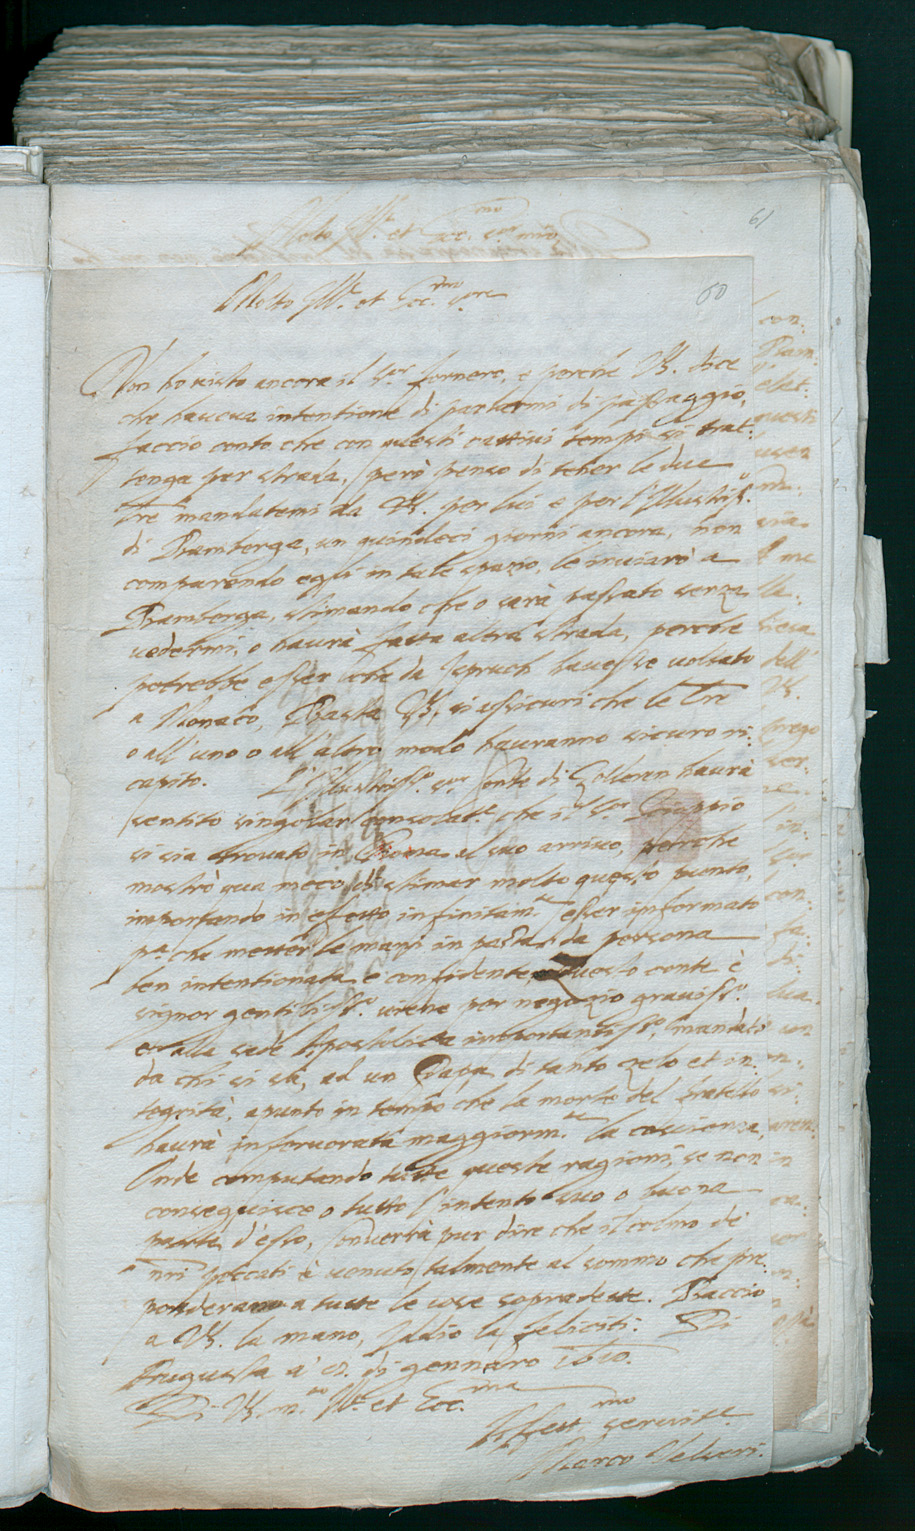 61
Molto Ill.re et Ecc.mo s.or mio
60
Molto Ill.re et Ecc.mo s.ore
Non ho visto ancora il S.or fornero, e perche VS. dice
che haveva intentione di parlarmi di passaggio,
faccio conto che con questi cattivi tempi si trat:
tenga per strada, però penso di tener le due
lre mandatemi da VS. per lui e per l'Illustriss.o
di Bamberga, un quindeci giorni ancora, non
comparendo egli in tale spazio, le inviarò a
Bamberga, stimando che o sarà passato senza
vedermi, o haurà fatta altra strada, perche
potrebbe esser che da Ispruch havesse voltato
a Monaco, Basta VS. si assicuri che le lre
o all'uno o all'altro modo hauranno sicuro ri:
capito. L'Illustriss.o s.or Conte di Zolleren haurà
sentito singolar consolat.e che il S.or Scioppio
si sia trovato in Roma al suo arrivo, perche
mostrò qua meco di stimar molto questo punto,
importando in effetto infinitam.te esser informato
p.a che metter le mani in pasta da persona
ben intentionata e confidente, questo conte è
signor gentiliss.o viene per negozio graviss.o
et alla sede Apostolica importantiss.o, mandato
da chi si sà, ad un Papa di tanto zelo et in:
tegrità, apunto in tempo che la morte del fratello
haurà infervorata maggiorm.te la coscienza,
Onde computando tutte queste ragioni, se non
conseguisce o tutto l'intento suo o buona
parte d'esso, converrà pur dire che il colmo de
nri peccati è venuto talmente al sommo che pre:
ponderano a tutte le cose sopradette. Baccio
a VS. la mano, Iddio la feliciti. Di
Augusta a' di gennaro 1610.
Di VS. m.to Ill.re et Ecc.ma
Affett.mo servit.e
Marco Velseri.